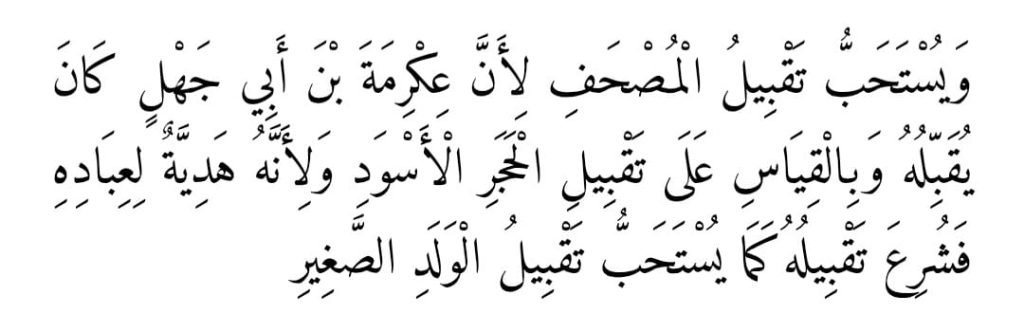 وَيُسْتَحَبُّ تَقْبِيلُ الْمُصْحَفِ لِأَنَّ عِكْرِمَةَ بْنَ أَبِي جَهْلٍ كَانَ
يُقَبِّلُهُ وَبِالْقِيَاسِ عَلَى تَقْبِيلِ الْحَجَرِ الْأَسْوَدِ وَلِأَنَّهُ هَدِيَّةٌ لِعِبَادِهِ
فَشُرِعَ تَقْبِيلُهُ كَمَا يُسْتَحَبُّ تَقْبِيلُ الْوَلَدِ الصَّغِيرِ